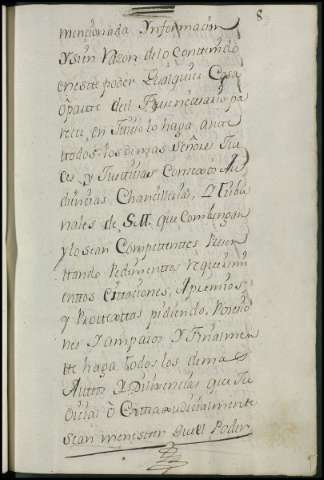 8
mencionada Ynformacion
Y sin Razon de lo Contenido
en este poder Qualquier Cosa
o parte del
en Juicio lo haga ante
todos los demas Señores Jue
ces, y Justicias Consejos Au
diencias Chancillerias, y tribu
nales de S.M. que Combengan
y lo sean Competentes Presen
tando Pedimentos requerimi
entos Citaciones, Apremios,
y Protextas pidiendo, Posesio
nes Y amparos Y finalmen
te haga todos los demas
Autos Y Diliencias que Ju
dicial o Extraxudicialmente
sean menester que el Poder